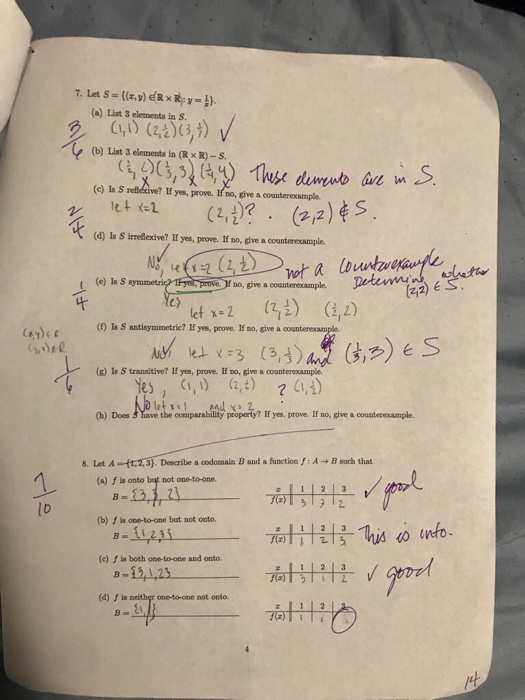 7. Let S = {(x, y) ∈ R × R: y = 1/x}.
(a) List 3 elements in S.
3/6 (1,1) (2,1/2) (3,1/3) ✓
(b) List 3 elements in (R × R) − S.
(1/2, 2) (1/3, 3) (1/4, 4) These elements are in S.
(c) Is S reflexive? If yes, prove. If no, give a counterexample.
2/4 let x=2 (2,1/2)? . (2,2) ∉ S.
(d) Is S irreflexive? If yes, prove. If no, give a counterexample.
No, let x=2 (2,1/2) not a counterexample
Determine whether
(2,2) ∈ S.
(e) Is S symmetric? If yes, prove. If no, give a counterexample.
1/4 Yes let x=2 (2,1/2) (1/2,2)
(f) Is S antisymmetric? If yes, prove. If no, give a counterexample.
(x,y)∈R
(y,x)∈R
No let x=3 (3,1/3) and (1/3,3) ∈ S
(g) Is S transitive? If yes, prove. If no, give a counterexample.
1/6 Yes, (1,1) (2,1/2) ? (1,1/2)
No let x=1 and x=2
(h) Does S have the comparability property? If yes, prove. If no, give a counterexample.
8. Let A = {1, 2, 3}. Describe a codomain B and a function f : A → B such that
7/10
(a) f is onto but not one-to-one.
B = x 1 2 3 ✓ good
f(x) 3 2
(b) f is one-to-one but not onto.
B = {1,2,3} x 1 2 3 This is onto.
f(x) 1 2 3
(c) f is both one-to-one and onto.
B = {3,1,2} x 1 2 3 ✓ good
f(x) 3 1 2
(d) f is neither one-to-one not onto.
B = x 1 2
f(x) 1 1
4
14